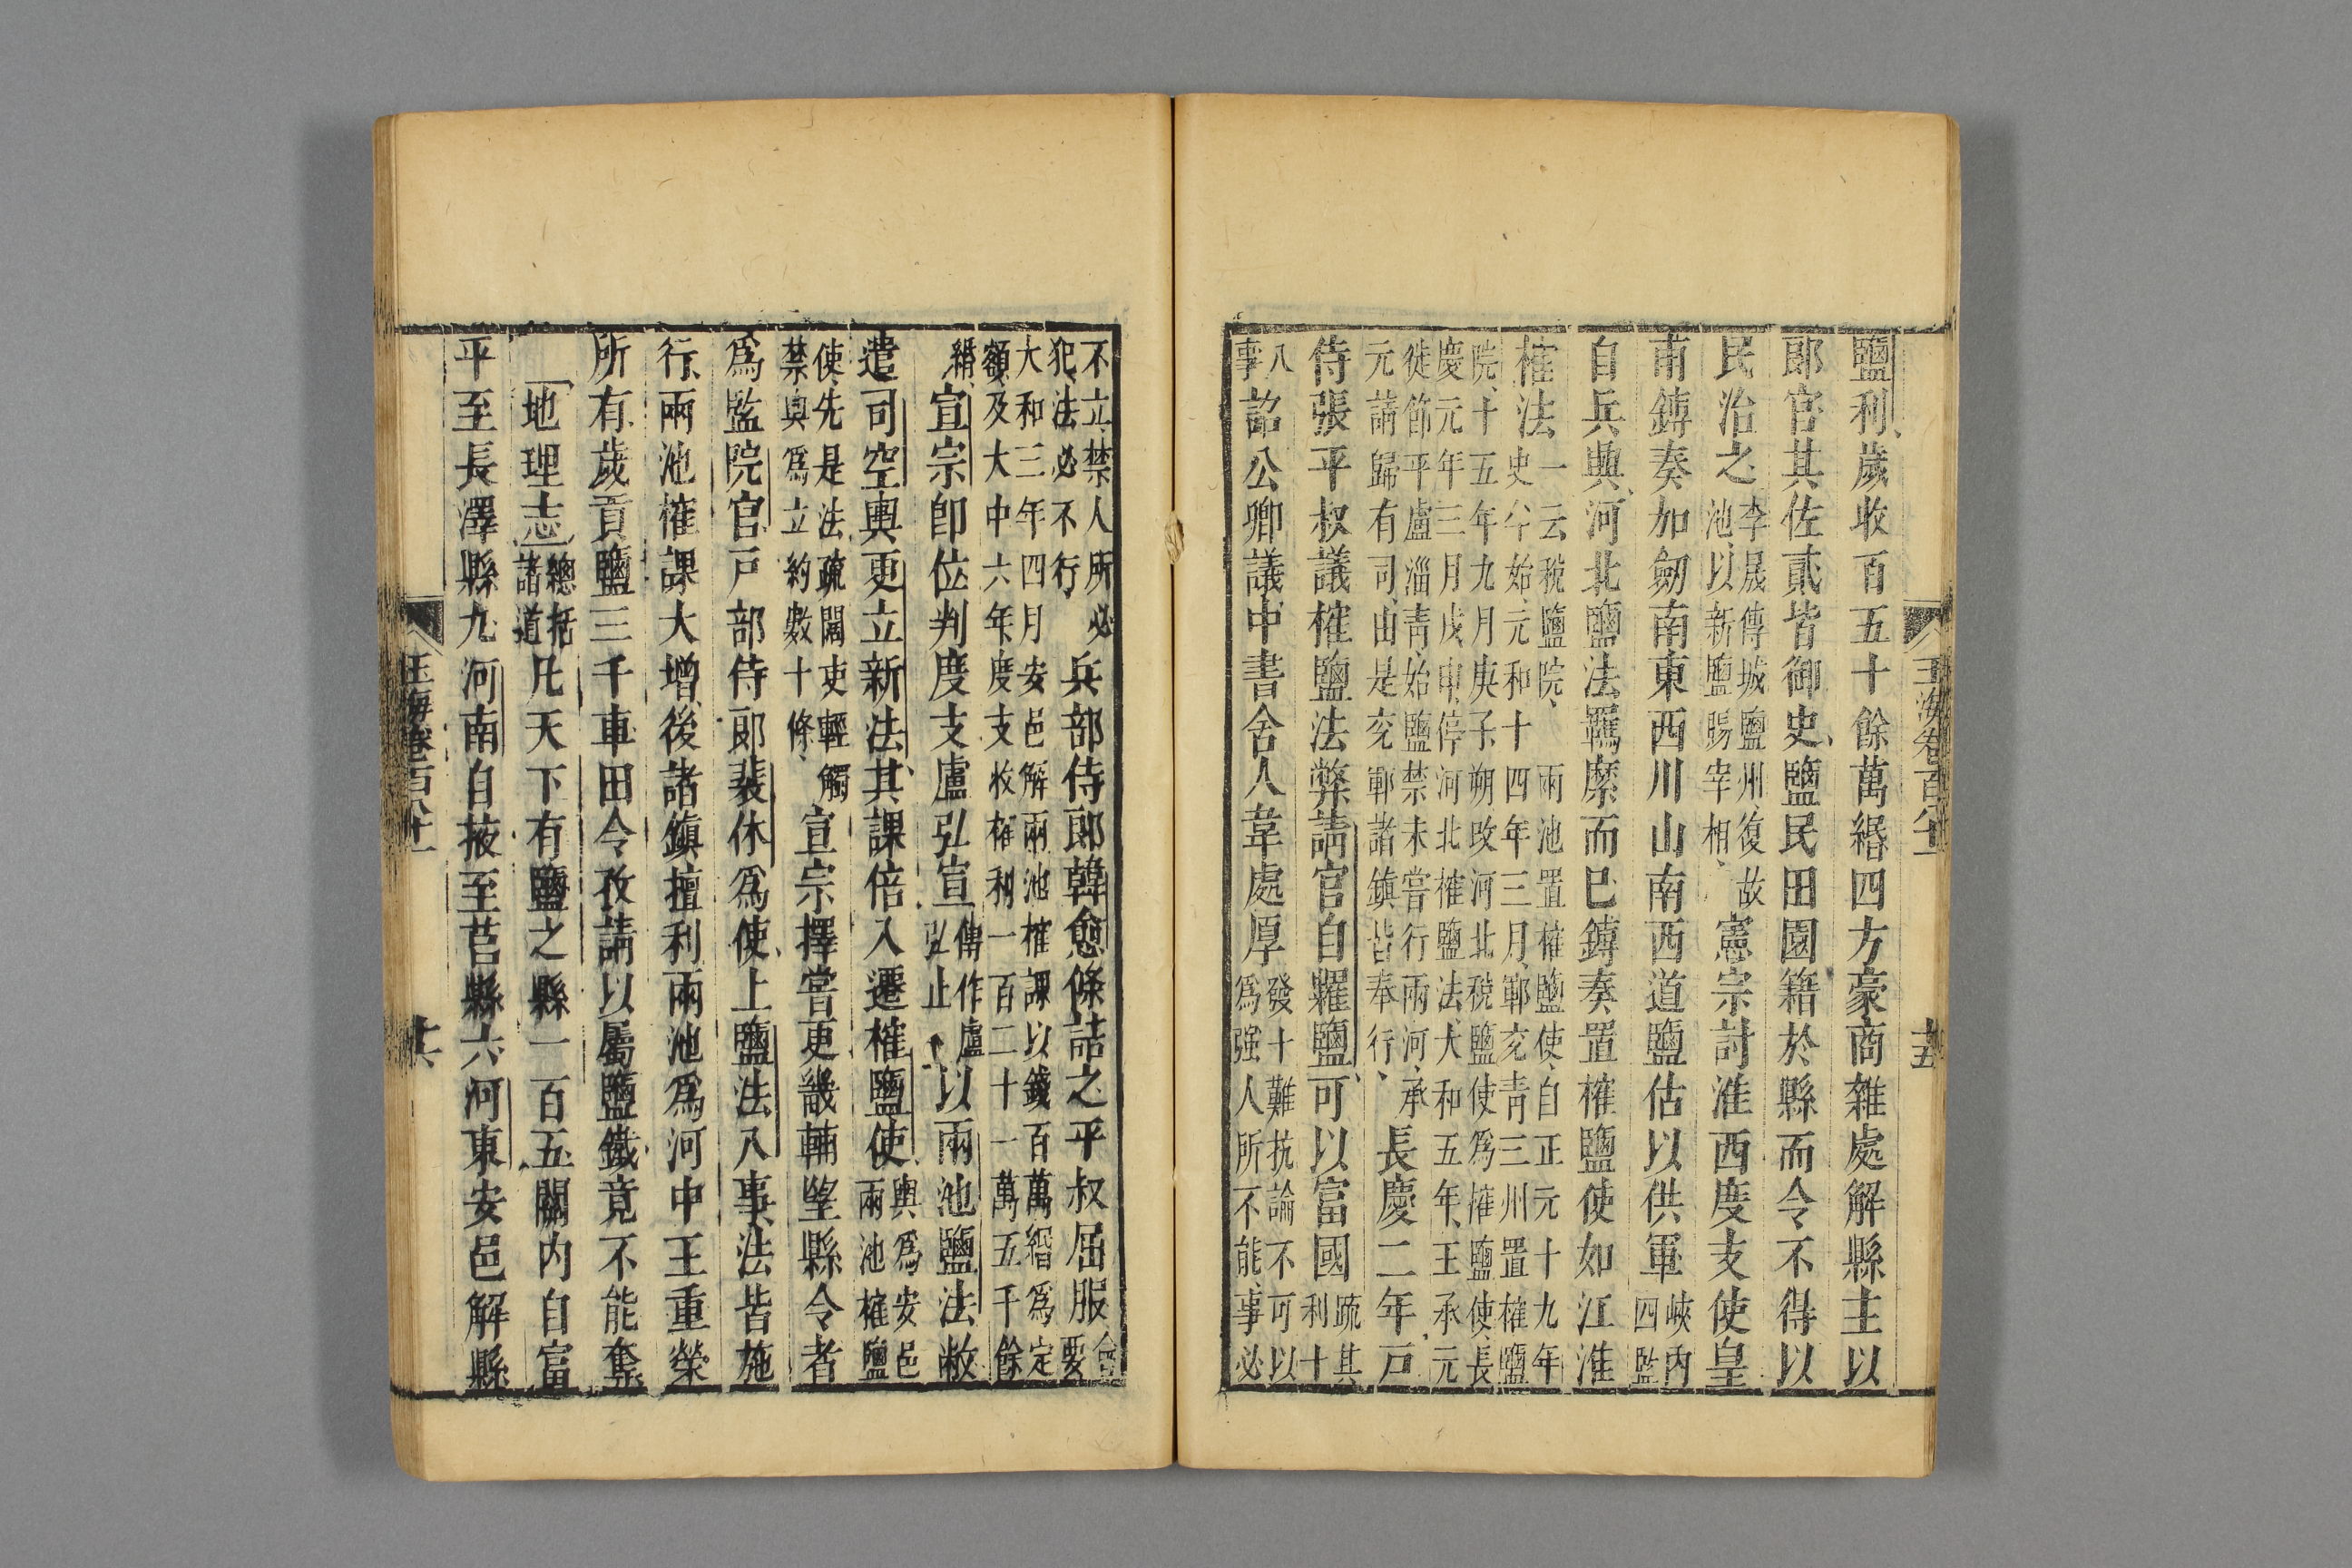 玉海卷百八十一
十五
鹽利歲收百五十餘萬緡四方豪商雜處解縣主以
郎官其佐貳皆御史鹽民田園籍於縣而令不得以
民治之李晟傳城鹽州復故池以新鹽賜宰相憲宗討淮西度支使皇
甫鎛奏加劒南東西川山南西道鹽估以供軍峽内四監
自兵興河北鹽法羈縻而已鎛奏置榷鹽使如江淮
榷法一云稅鹽院兩池置榷鹽使自正元十九年史牟始元和十四年三月鄆兖青三州置榷鹽
院十五年九月庚子朔改河北稅鹽使爲榷鹽使長慶元年三月戊申停河北榷鹽法大和五年王承元
徙節平盧淄青始鹽禁未嘗行兩河承元請歸有司由是兖鄆諸鎮皆奉行長慶二年戸
侍張平叔議榷鹽法弊請官自糶鹽可以富國疏其利十
八事詔公卿議中書舍人韋處厚發十難抗論不可以爲強人所不能事必
不立禁人所必犯法必不行兵部侍郎韓愈條詰之平叔屈服會要
大和三年四月安邑解兩池榷課以錢百萬緡爲定額及大中六年度支收榷利一百二十一萬五千餘
緡宣宗卽位判度支盧弘宣傳作盧弘止以兩池鹽法敝
遣司空輿更立新法其課倍入遷榷鹽使輿爲安邑兩池榷鹽
使先是法疏闊吏輕觸禁輿爲立約數十條宣宗擇嘗更畿輔望縣令者
爲監院官戸部侍郎裴休爲使上鹽法八事法皆施
行兩池榷課大增後諸鎮擅利兩池爲河中王重榮
所有歲貢鹽三千車田令孜請以屬鹽鐵竟不能奪
地理志總括諸道凡天下有鹽之縣一百五關内自富
平至長澤縣九河南自掖至莒縣六河東安邑解縣
玉海卷百八十一
十六